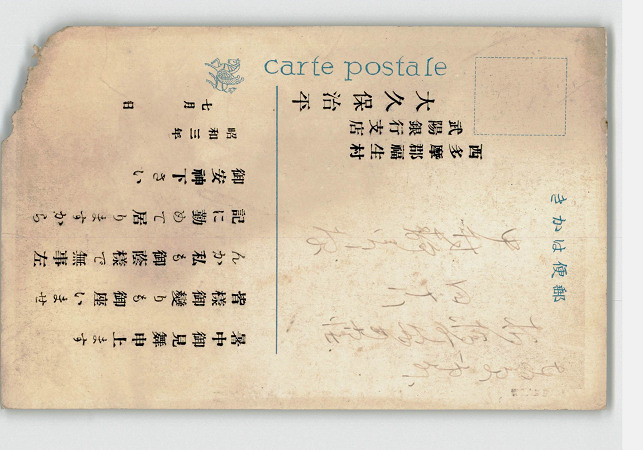 郵便はかき
carte postale
暑中御見舞申上ます
皆様御變りも御座いませ
んか私も御蔭様で無事左
記に勤めて居りますから
御安神下さい
昭和三年
七月　日
西多摩郡福生村
武陽銀行支店
大久保治平